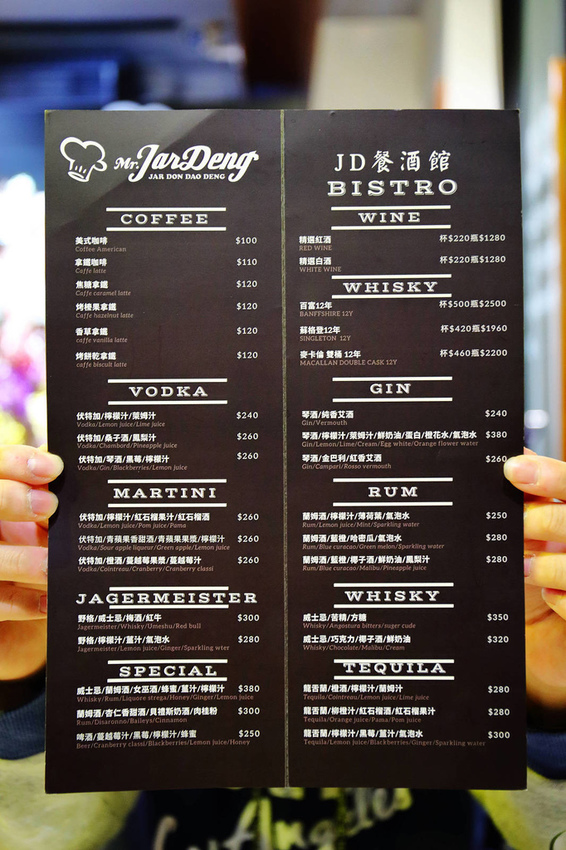 Mr. JarDeng
JAR DON DAO DENG
COFFEE
美式咖啡 $100
Coffee American
拿鐵咖啡 $110
Caffe latte
焦糖拿鐵 $120
Caffe caramel latte
烤榛果拿鐵 $120
Caffe hazelnut latte
香草拿鐵 $120
caffe vanilla latte
烤餅乾拿鐵 $120
caffe biscuit latte
VODKA
伏特加/檸檬汁/萊姆汁 $240
Vodka/Lemon juice/Lime juice
伏特加/桑子酒/鳳梨汁 $260
Vodka/Chambord/Pineapple juice
伏特加/琴酒/黑莓/檸檬汁 $260
Vodka/Gin/Blackberries/Lemon juice
MARTINI
伏特加/檸檬汁/紅石榴果汁/紅石榴酒 $260
Vodka/Lemon juice/Pom juice/Pama
伏特加/青蘋果香甜酒/青蘋果果漿/檸檬汁 $260
Vodka/Sour apple liqueur/Green apple/Lemon juice
伏特加/橙酒/蔓越莓果漿/蔓越莓汁 $260
Vodka/Cointreau/Cranberry/Cranberry classi
JAGERMEISTER
野格/威士忌/梅酒/紅牛 $300
Jagermeister/Whisky/Umeshu/Red bull
野格/檸檬汁/薑汁/氣泡水 $280
Jagermeister/Lemon juice/Ginger/Sparkling wter
SPECIAL
威士忌/蘭姆酒/女巫酒/蜂蜜/薑汁/檸檬汁 $380
Whisky/Rum/Liquore strega/Honey/Ginger/Lemon juice
蘭姆酒/杏仁香甜酒/貝禮斯奶酒/肉桂粉 $300
Rum/Disaronno/Baileys/Cinnamon
啤酒/蔓越莓汁/黑莓/檸檬汁/蜂蜜 $250
Beer/Cranberry classi/Blackberries/Lemon juice/Honey
JD餐酒館
BISTRO
WINE
精選紅酒 杯$220瓶$1280
RED WINE
精選白酒 杯$220瓶$1280
WHITE WINE
WHISKY
百富12年 杯$500瓶$2500
BANFFSHIRE 12Y
蘇格登12年 杯$420瓶$1960
SINGLETON 12Y
麥卡倫 雙桶 12年 杯$460瓶$2200
MACALLAN DOUBLE CASK 12Y
GIN
琴酒/純香艾酒 $240
Gin/Vermouth
琴酒/檸檬汁/萊姆汁/鮮奶油/蛋白/橙花水/氣泡水 $380
Gin/Lemon/Lime/Cream/Egg white/Orange flower water
琴酒/金巴利/紅香艾酒 $260
Gin/Campari/Rosso vermouth
RUM
蘭姆酒/檸檬汁/薄荷葉/氣泡水 $250
Rum/Lemon juice/Mint/Sparkling water
蘭姆酒/藍橙/哈密瓜/氣泡水 $280
Rum/Blue curacao/Green melon/Sparkling water
蘭姆酒/藍橙/椰子酒/鮮奶油/鳳梨汁 $280
Rum/Blue curacao/Malibu/Pineapple juice
WHISKY
威士忌/苦精/方糖 $350
Whisky/Angostura bitters/suger cude
威士忌/巧克力/椰子酒/鮮奶油 $320
Whisky/Chocolate/Malibu/Cream
TEQUILA
龍舌蘭/橙酒/檸檬汁/蘭姆汁 $280
Tequila/Cointreau/Lemon juice/Lime juice
龍舌蘭/柳橙汁/紅石榴酒/紅石榴果汁 $280
Tequila/Orange juice/Pama/Pom juice
龍舌蘭/檸檬汁/黑莓/薑汁/氣泡水 $300
Tequila/Lemon juice/Blackberries/Ginger/Sparkling water